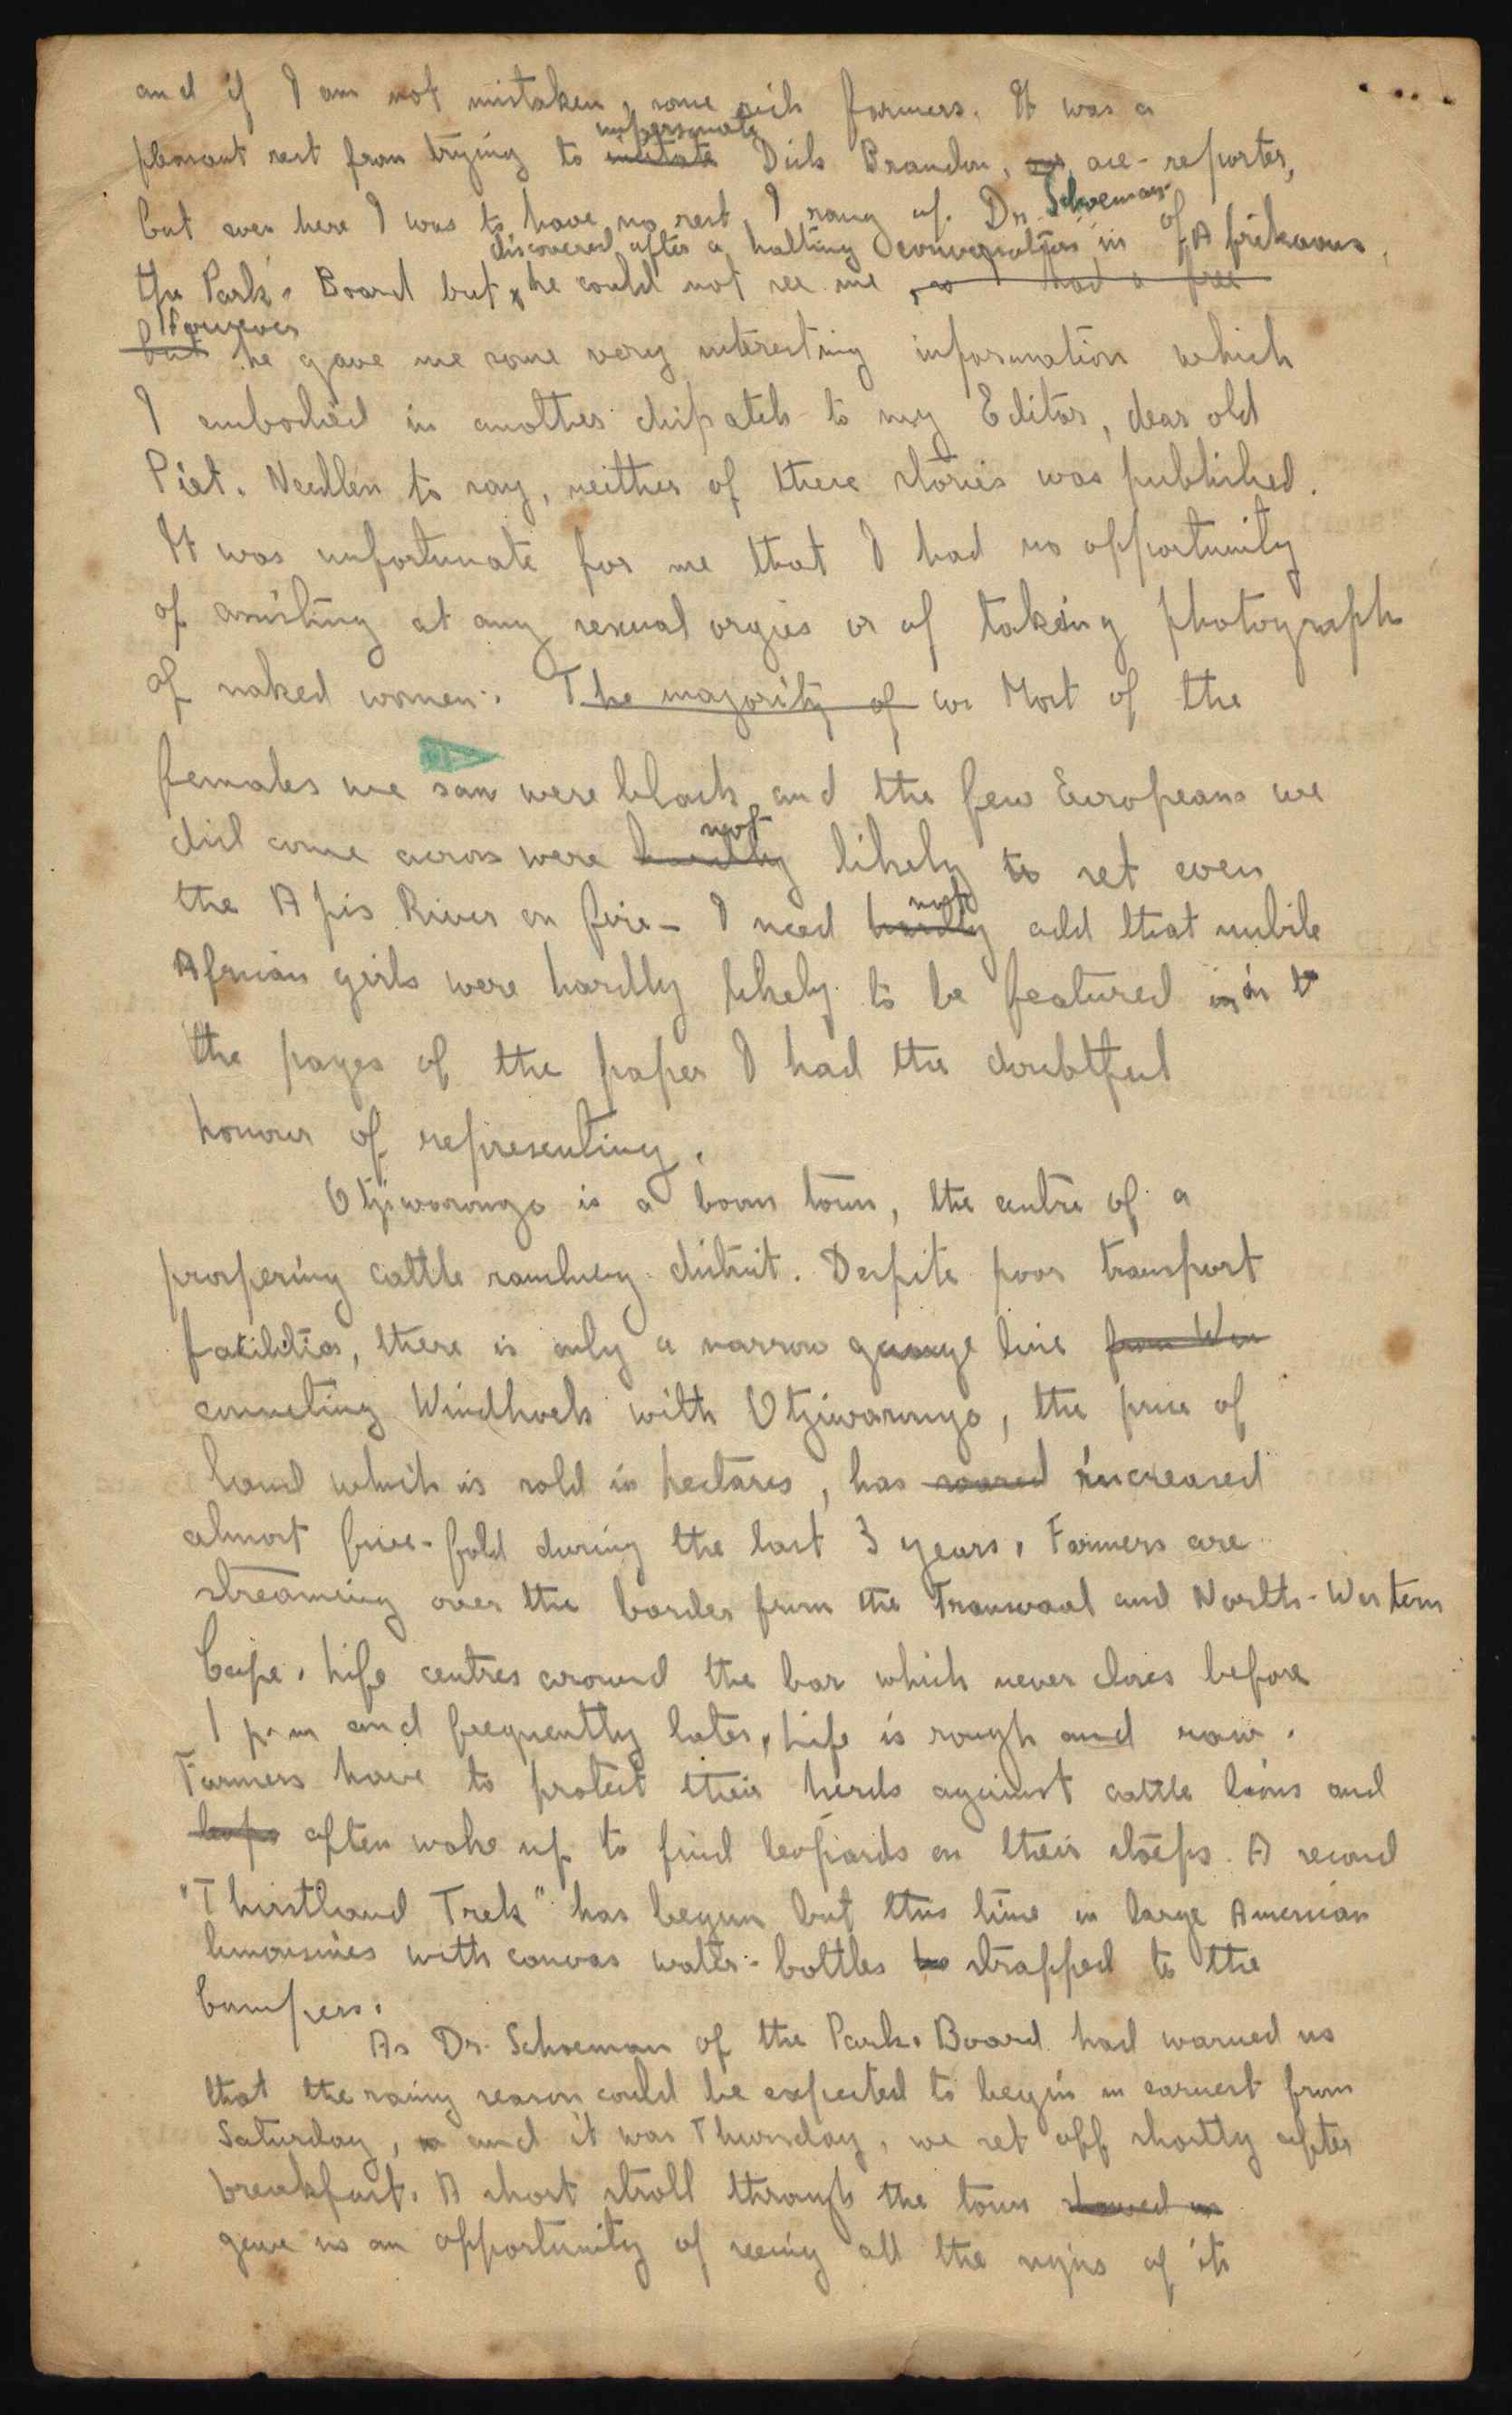 and if I am not mistaken, some rich farmers. It was a
impersonate
pleasant rest from trying to imitate Dick Brandon, our ace-reporter,
but even here I was to have no rest, I rang up Dr. Schoeman of
discovered after a halting conversation in Afrikaans,
the Parks Board but he could not see me , so had a free
However
but he gave me some very interesting information which
I embodied in another dispatch to my Editor, dear old
Piet. Needless to say, neither of these stories was published.
It was unfortunate for me that I had no opportunity
of assisting at any sexual orgies or of taking photographs
of naked women. The majority of we Most of the
females we saw were black and the few Europeans we
not
did come across were hardly likely to set even
not
the Apis River on fire - I need hardly add that nubile
African girls were hardly likely to be featured in in t
the pages of the paper I had the doubtful
honour of representing.
Otjiwarongo is a boom town, the centre of a
prospering cattle ranching district. Despite poor transport
facilities, there is only a narrow gauge line from Win
connecting Windhoek with Otjiwarongo, the price of
land which is sold in hectares, has soared increased
almost five-fold during the last 3 years. Farmers are
streaming over the border from the Transvaal and North-Western
Cape. Life centres around the bar which never closes before
1 p.m and frequently later. Life is rough and raw.
Farmers have to protect their herds against cattle lions and
leops often wake up to find leopards on their stoeps. A second
"Thirstland Trek" has begun but this time in large American
limousines with canvas water-bottles strapped to the
bumpers.
As Dr. Schoeman of the Parks Board had warned us
that the rainy season could be expected to begin in earnest from
Saturday, and it was Thursday, we set off shortly after
breakfast. A short stroll through the town showed us
gave us an opportunity of seeing all the signs of its